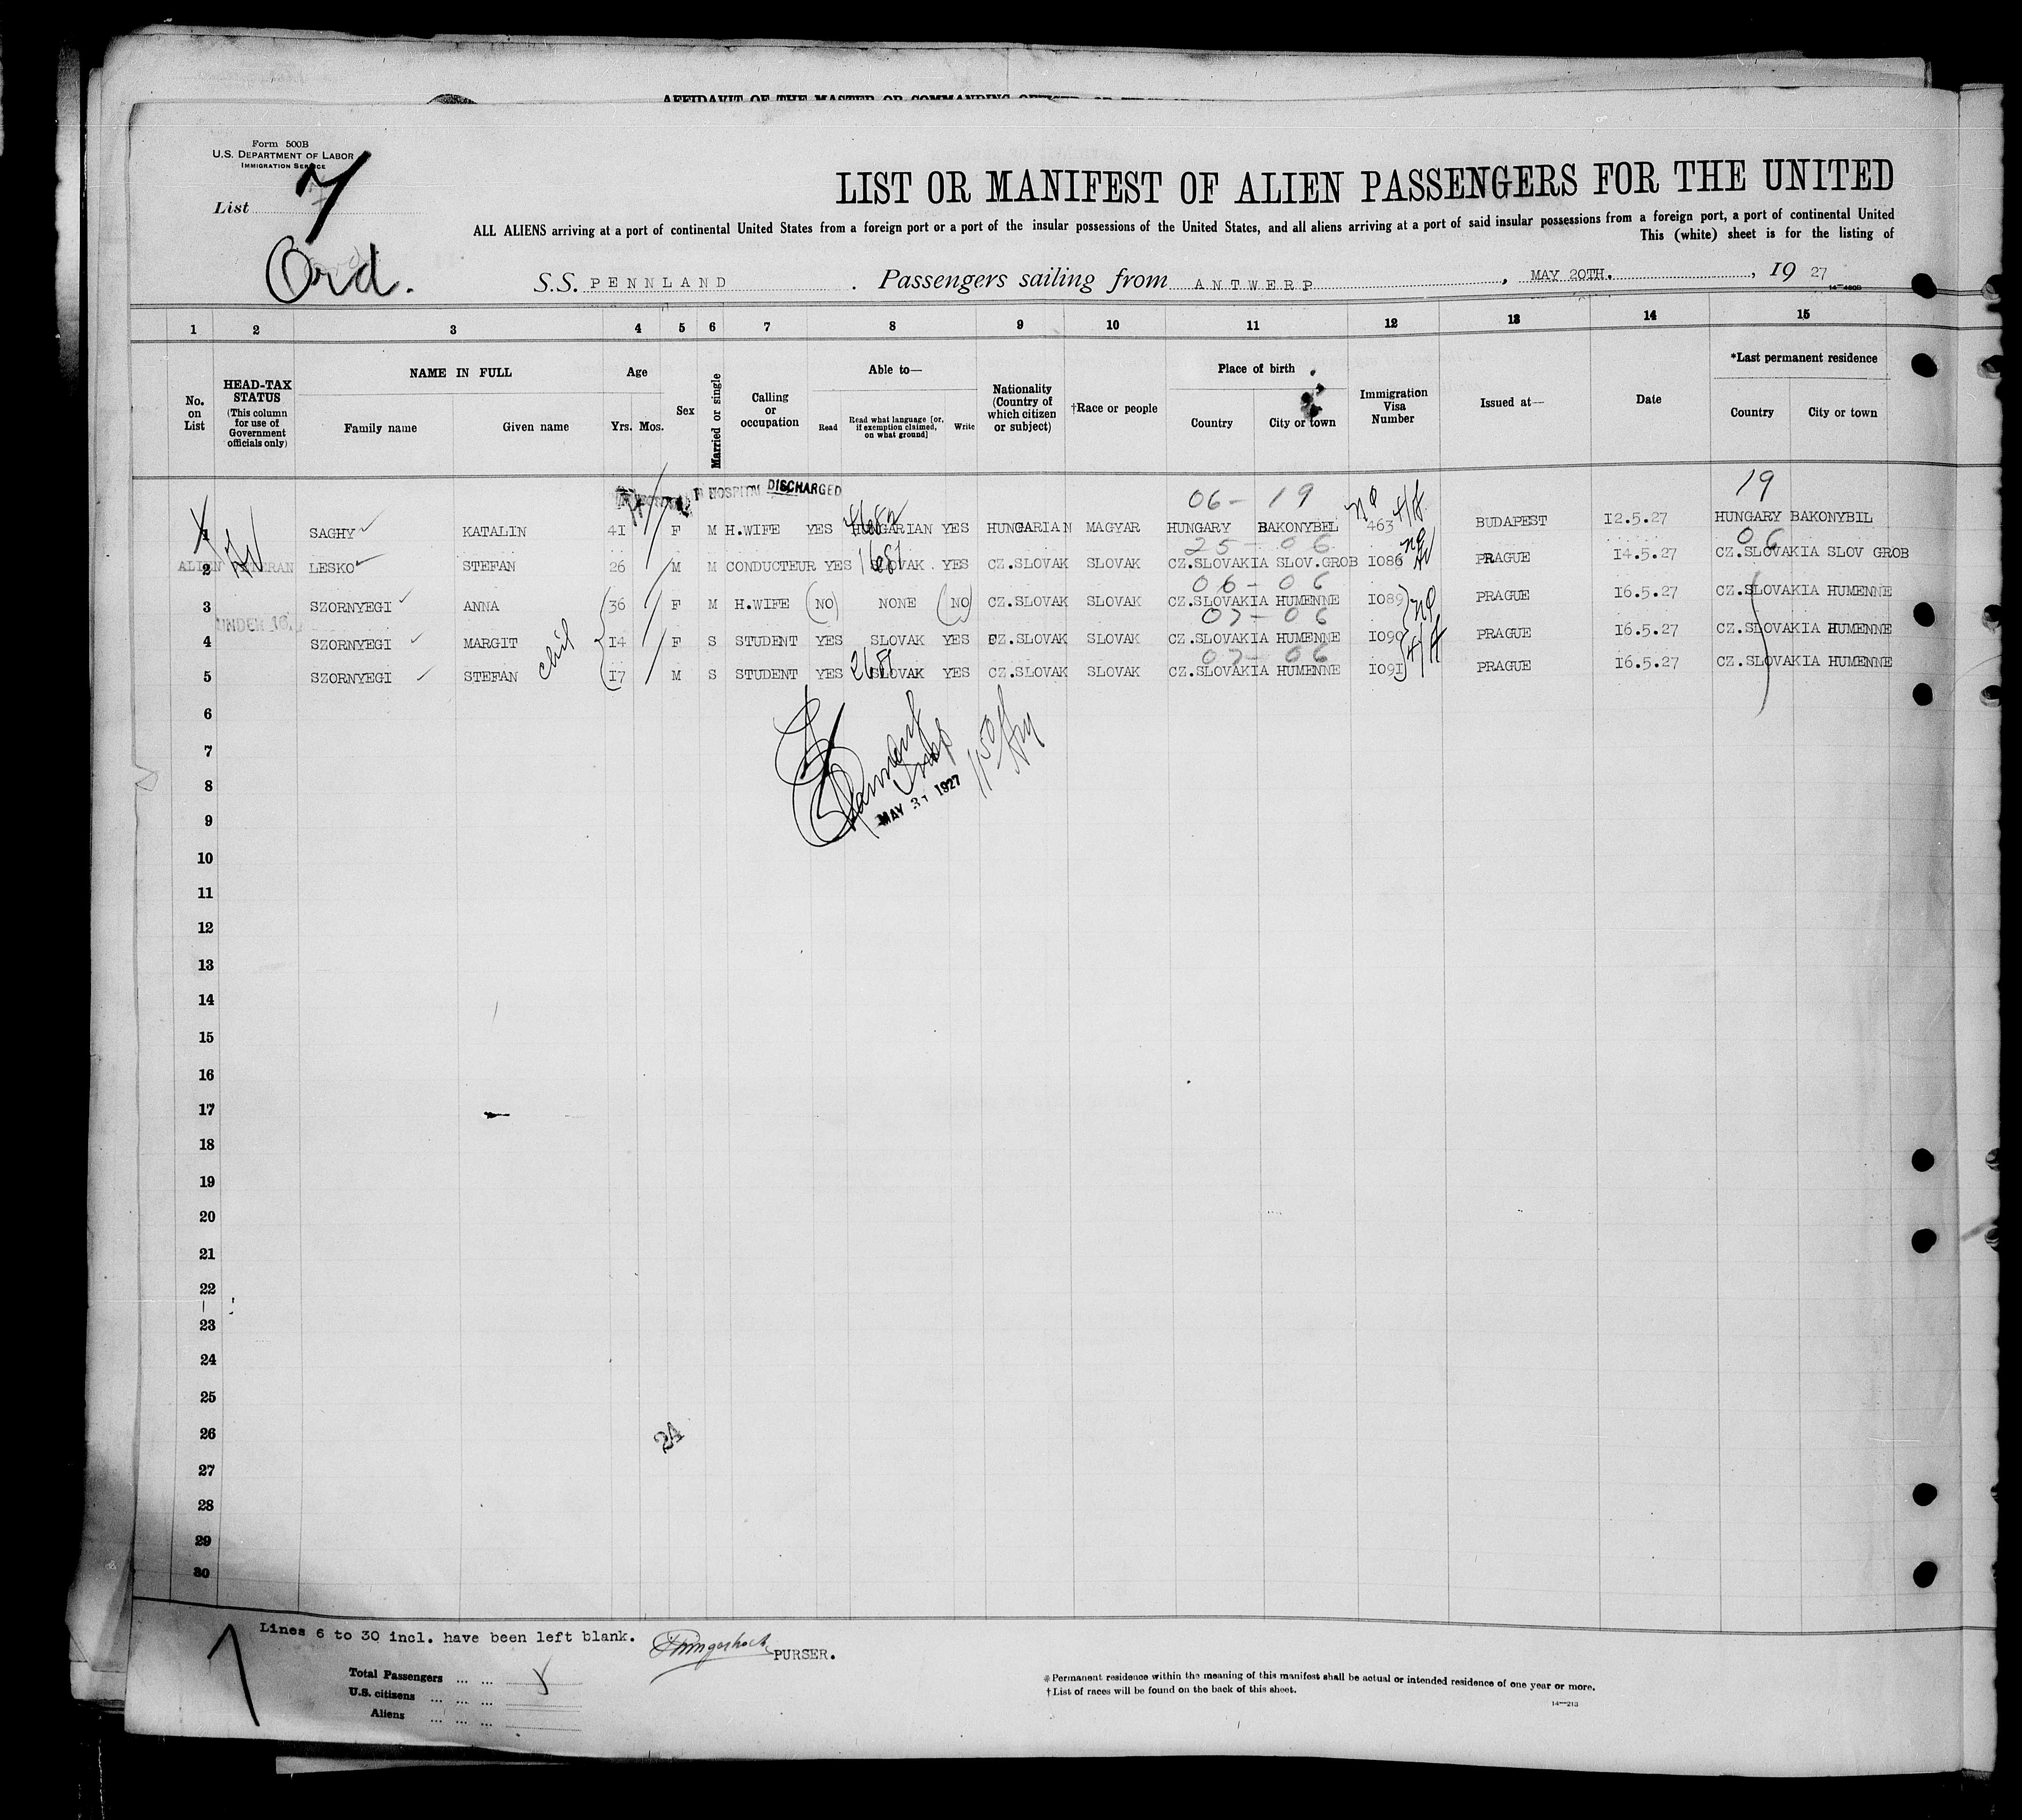 AFFIDAVIT OF THE MASTER OR COMMANDING OFFICER
Form 500B
U.S. DEPARTMENT OF LABOR
IMMIGRATION SERVICE
List 7
Ord.
LIST OR MANIFEST OF ALIEN PASSENGERS FOR THE UNITED
ALL ALIENS arriving at a port of continental United States from a foreign port or a port of the insular possessions of the United States, and all aliens arriving at a port of said insular possessions from a foreign port, a port of continental United
This (white) sheet is for the listing of
S.S. PENNLAND . Passengers sailing from ANTWERP , MAY 20TH. , 19 27
1 2 3 4 5 6 7 8 9 10 11 12 13 14 15
No. on List
HEAD-TAX STATUS (This column for use of Government officials only)
NAME IN FULL
Family name Given name
Age
Yrs. Mos.
Sex
Married or single
Calling or occupation
Able to—
Read Read what language [or, if exemption claimed, on what ground] Write
Nationality (Country of which citizen or subject)
†Race or people
Place of birth
Country City or town
Immigration Visa Number
Issued at—
Date
*Last permanent residence
Country City or town
HOSPITAL DISCHARGED
06-19 19
1 SAGHY KATALIN 41 F M H.WIFE YES HUNGARIAN YES HUNGARIAN MAGYAR HUNGARY BAKONYBEL 463 BUDAPEST 12.5.27 HUNGARY BAKONYBIL
25-06 06
2 LESKO STEFAN 26 M M CONDUCTEUR YES SLOVAK YES CZ.SLOVAK SLOVAK CZ.SLOVAKIA SLOV.GROB 1086 PRAGUE 14.5.27 CZ.SLOVAKIA SLOV GROB
06-06
3 SZORNYEGI ANNA 36 F M H.WIFE (NO) NONE (NO) CZ.SLOVAK SLOVAK CZ.SLOVAKIA HUMENNE 1089 PRAGUE 16.5.27 CZ.SLOVAKIA HUMENNE
UNDER 16
07-06
4 SZORNYEGI MARGIT 14 F S STUDENT YES SLOVAK YES CZ.SLOVAK SLOVAK CZ.SLOVAKIA HUMENNE 1090 PRAGUE 16.5.27 CZ.SLOVAKIA HUMENNE
07-06
5 SZORNYEGI STEFAN 17 M S STUDENT YES SLOVAK YES CZ.SLOVAK SLOVAK CZ.SLOVAKIA HUMENNE 1091 PRAGUE 16.5.27 CZ.SLOVAKIA HUMENNE
6
7
8
MAY 31 1927
9
10
11
12
13
14
15
16
17
18
19
20
21
22
23
24
25
26
24
27
28
29
30
Lines 6 to 30 incl. have been left blank.
PURSER.
Total Passengers ... ...
U.S. citizens ... ... ...
Aliens ... ... ...
*Permanent residence within the meaning of this manifest shall be actual or intended residence of one year or more.
†List of races will be found on the back of this sheet.
14—213